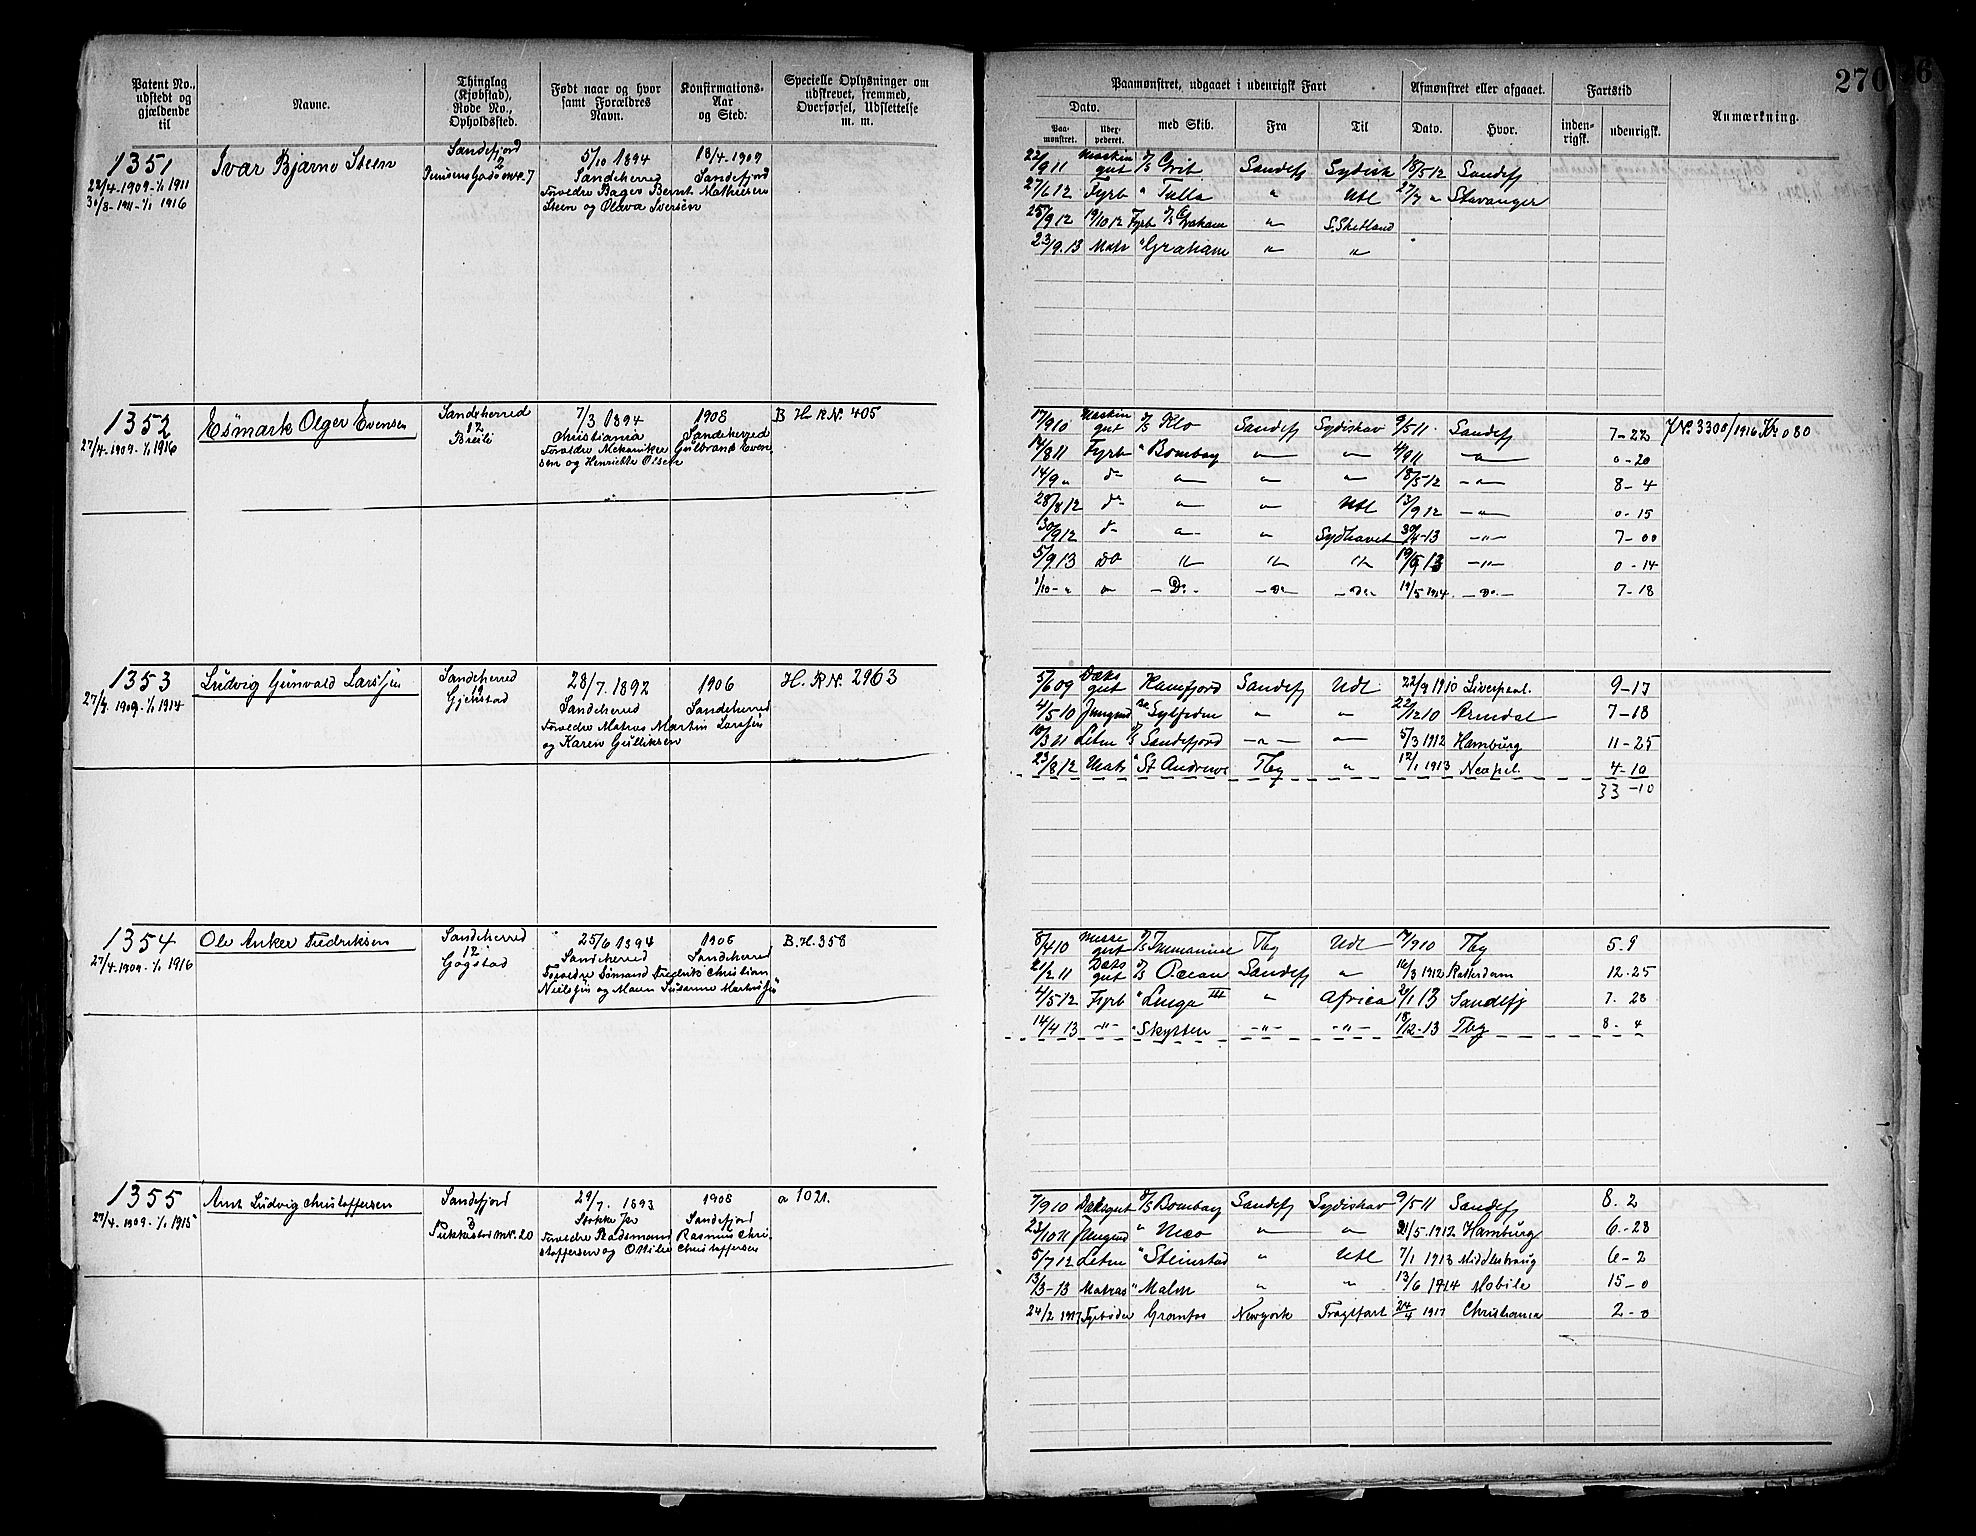 270
Patent No., udstedt og gjældende til
Navne.
Thinglag (Kjøbstad), Rode No., Opholdssted.
Født naar og hvor samt Forældres Navn.
Konfirmations-Aar og Sted.
Specielle Oplysninger om udskrevet, fremmed, Overførsel, Udslettelse m. m.
Paamønstret, udgaaet i udenrigsk Fart
Afmønstret eller afgaaet.
Fartstid
Anmærkning.
Dato.
Paa-mønstret.
med Skib.
Fra
Til
Dato.
Hvor.
inden-rigsk.
udenrigsk.
1351
22/4.1909-1/1 1911
30/8-1911-1/1 1916
Ivar Bjarne Steen
Sandefjord
2
5/10 1894
Sandeherred
Forældre Bager Bernt Mathiesen
Steen og Olava Iversen
18/4-1909
Sandefjord
22/9 11 Maskingut D/S Grib Sandefj Sydish 18/5 12 Sandefj
27/6 12 Fyrb " Tulla " Utl 27/7 " Stavanger
25/9 12 19/10 12 Fyrb D/S Graham " S. Shetland
23/9.13 Matr " Graham " "
1352
27/4.1909-1/1 1916
Esmark Olger Evensen
Sandeherred
12
7/3 1894
Christiania
Forældre Mekaniker Gulbrand Even
sen og Henriette Olsen
1908
Sandeherred
B H R N. 405
17/9 10 Maskingut D/S Klo Sandefj Sydishav 9/5 11 Sandefj 7-22 JNo 3300/1916 Kr 0 80
14/8 11 Fyrb " Bombay " " 4/9 11 " 0-20
14/9 " do " " " 18/5-12 " 8-4
28/8 12 do " " Utl 13/9 12 " 0-15
30/9 12 do " " Sydhavet 30/4-13 " 7-00
5/9.13 DO " " " 19/9 13 " 0-14
1/10- " " Do. Do Do 19/5 1914. Do. 7-18
1353
27/4.1909-1/1 1914
Ludvig Gunvald Larssen
Sandeherred
12
Gjekstad
28/7.1892
Sandeherred
Forældre Matros Martin Larssen
og Karen Gulliksen
1906
Sandeherred
H. R N. 2963
5/6 09 Dæksgut Ramfjord Sandefj Udl 22/4 1910 Liverpool. 9-17
4/5 10 Jungmd Sylfiden " " 22/12 10 Arendal 7-18
10/3 11 Letm D/S Sandefjord " " 5/3 1912 Hamburg 11-25
23/8 12 Matr " St Andrews Tbg " 12/1 1913 Neapel. 4-10
33-10
1354
27/4.1909-1/1 1916
Ole Anker Fredriksen
Sandeherred
12
Gogstad
25/6 1894
Sandeherred
Forældre Sømand Fredrik Christian
Nielssen og Maren Susanne Martinssen
1908
Sandeherred
B. H. 358
8/4 10 Messegut D/S Immanuel Tbg Udl 7/9 10 Tbg 5.9
21/2 11 Dæksgut D/S Ocean Sandefj " 16/3 1912 Rotterdam 12.25
4/5 12 Fyrb " Linge III " Africa 20/1 13 Sandefj 7.28
14/4 13 " " Skytten " " 18/12-13 Tbg 8-4
1355
27/4.1909-1/1 1915
Arnt Ludvig Christoffersen
Sandefjord
3
Pukkestad mk. 20
29/7. 1893
Forældre Baadsmand Rasmus Chri
stoffersen og Ottilie Christoffersen
1908
Sandefjord
a 1021.
7/9 10 Dæksgut D/S Bombay Sandefj Sydishav 9/5 11 Sandefj 8.2
23/10 11 Jungmd " Nico " " 31/5.1912 Hamburg 6-28
5/7 12 Letm " Steinstad " Utl 7/1 1913 Middlesbroug 6-2
13/3-13 Matros " Malm " " 13/6 1914 Mobile 15-0
24/2 1917 Fyrbøder Grontos Newyork Fragtfart 24/4 1917 Christiania 2-0